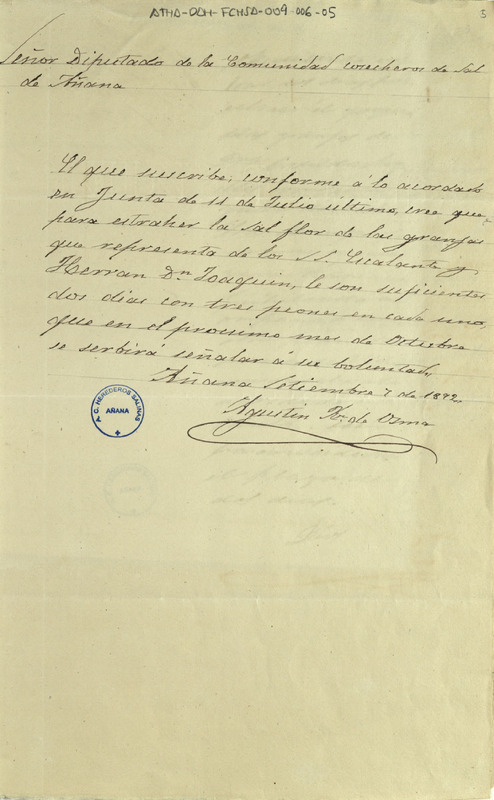 ATHA-DAH-FCHSA-009-006-05
5
Señor Diputado de la Comunidad cosecheros de Sal
de Añana
El que suscribe, conforme á lo acordado
en Junta de 11 de Julio último, cree que,
para estraher la sal flor de las granjas
que representa de los S.S. y
Herran Dn Joaquin, le son suficientes
dos dias con tres peones en cada uno,
que en el procsimo mes de Octubre
se serbirá señalar á su boluntad,
Añana Setiembre 7 de 1892
Agustin Rz. de Osma
A. C. HEREDEROS SALINAS
AÑANA